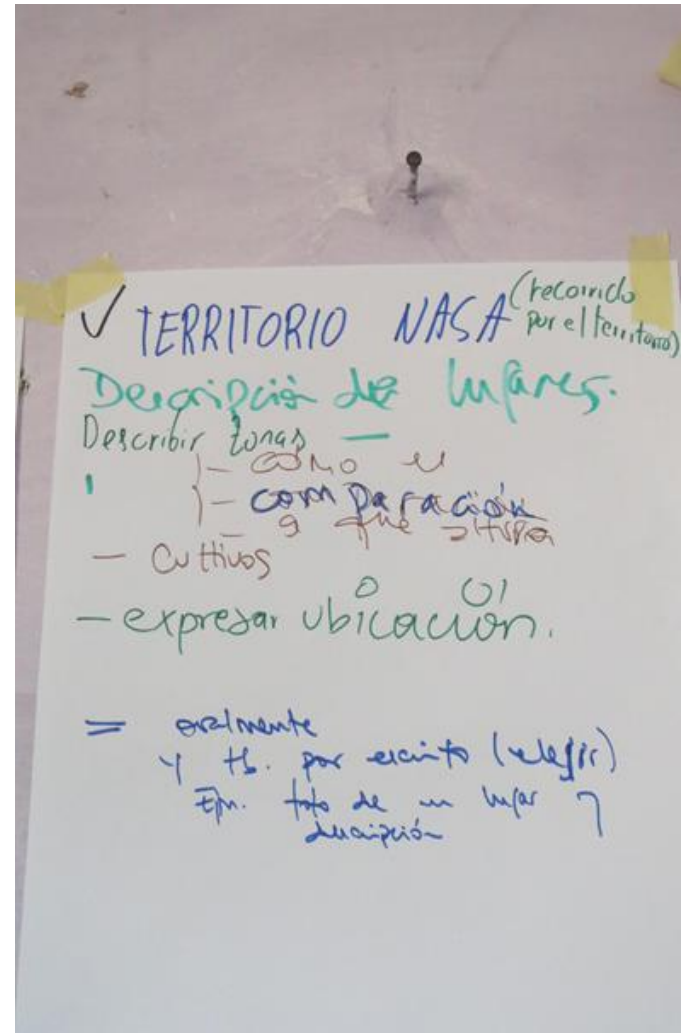 ✓ TERRITORIO NASA (recorrido
por el territorio)
Descripción de lugares.
Describir zonas —
- como es
- comparación
- a que altura
- Cultivos
- expresar ubicación.
= oralmente
y tb. por escrito (elegir)
Ejm. foto de un lugar
descripción